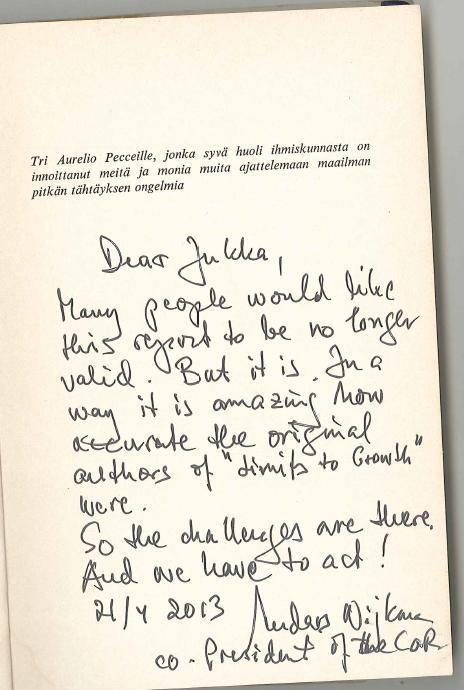 Tri Aurelio Pecceille, jonka syvä huoli ihmiskunnasta on
innoittanut meitä ja monia muita ajattelemaan maailman
pitkän tähtäyksen ongelmia
Dear Jukka,
Many people would like
this report to be no longer
valid. But it is. In a
way it is amazing how
accurate the original
authors of "Limits to Growth"
were.
So the challenges are there.
And we have to act!
21/4 2013 Anders Wijkman
co-President of the CoR